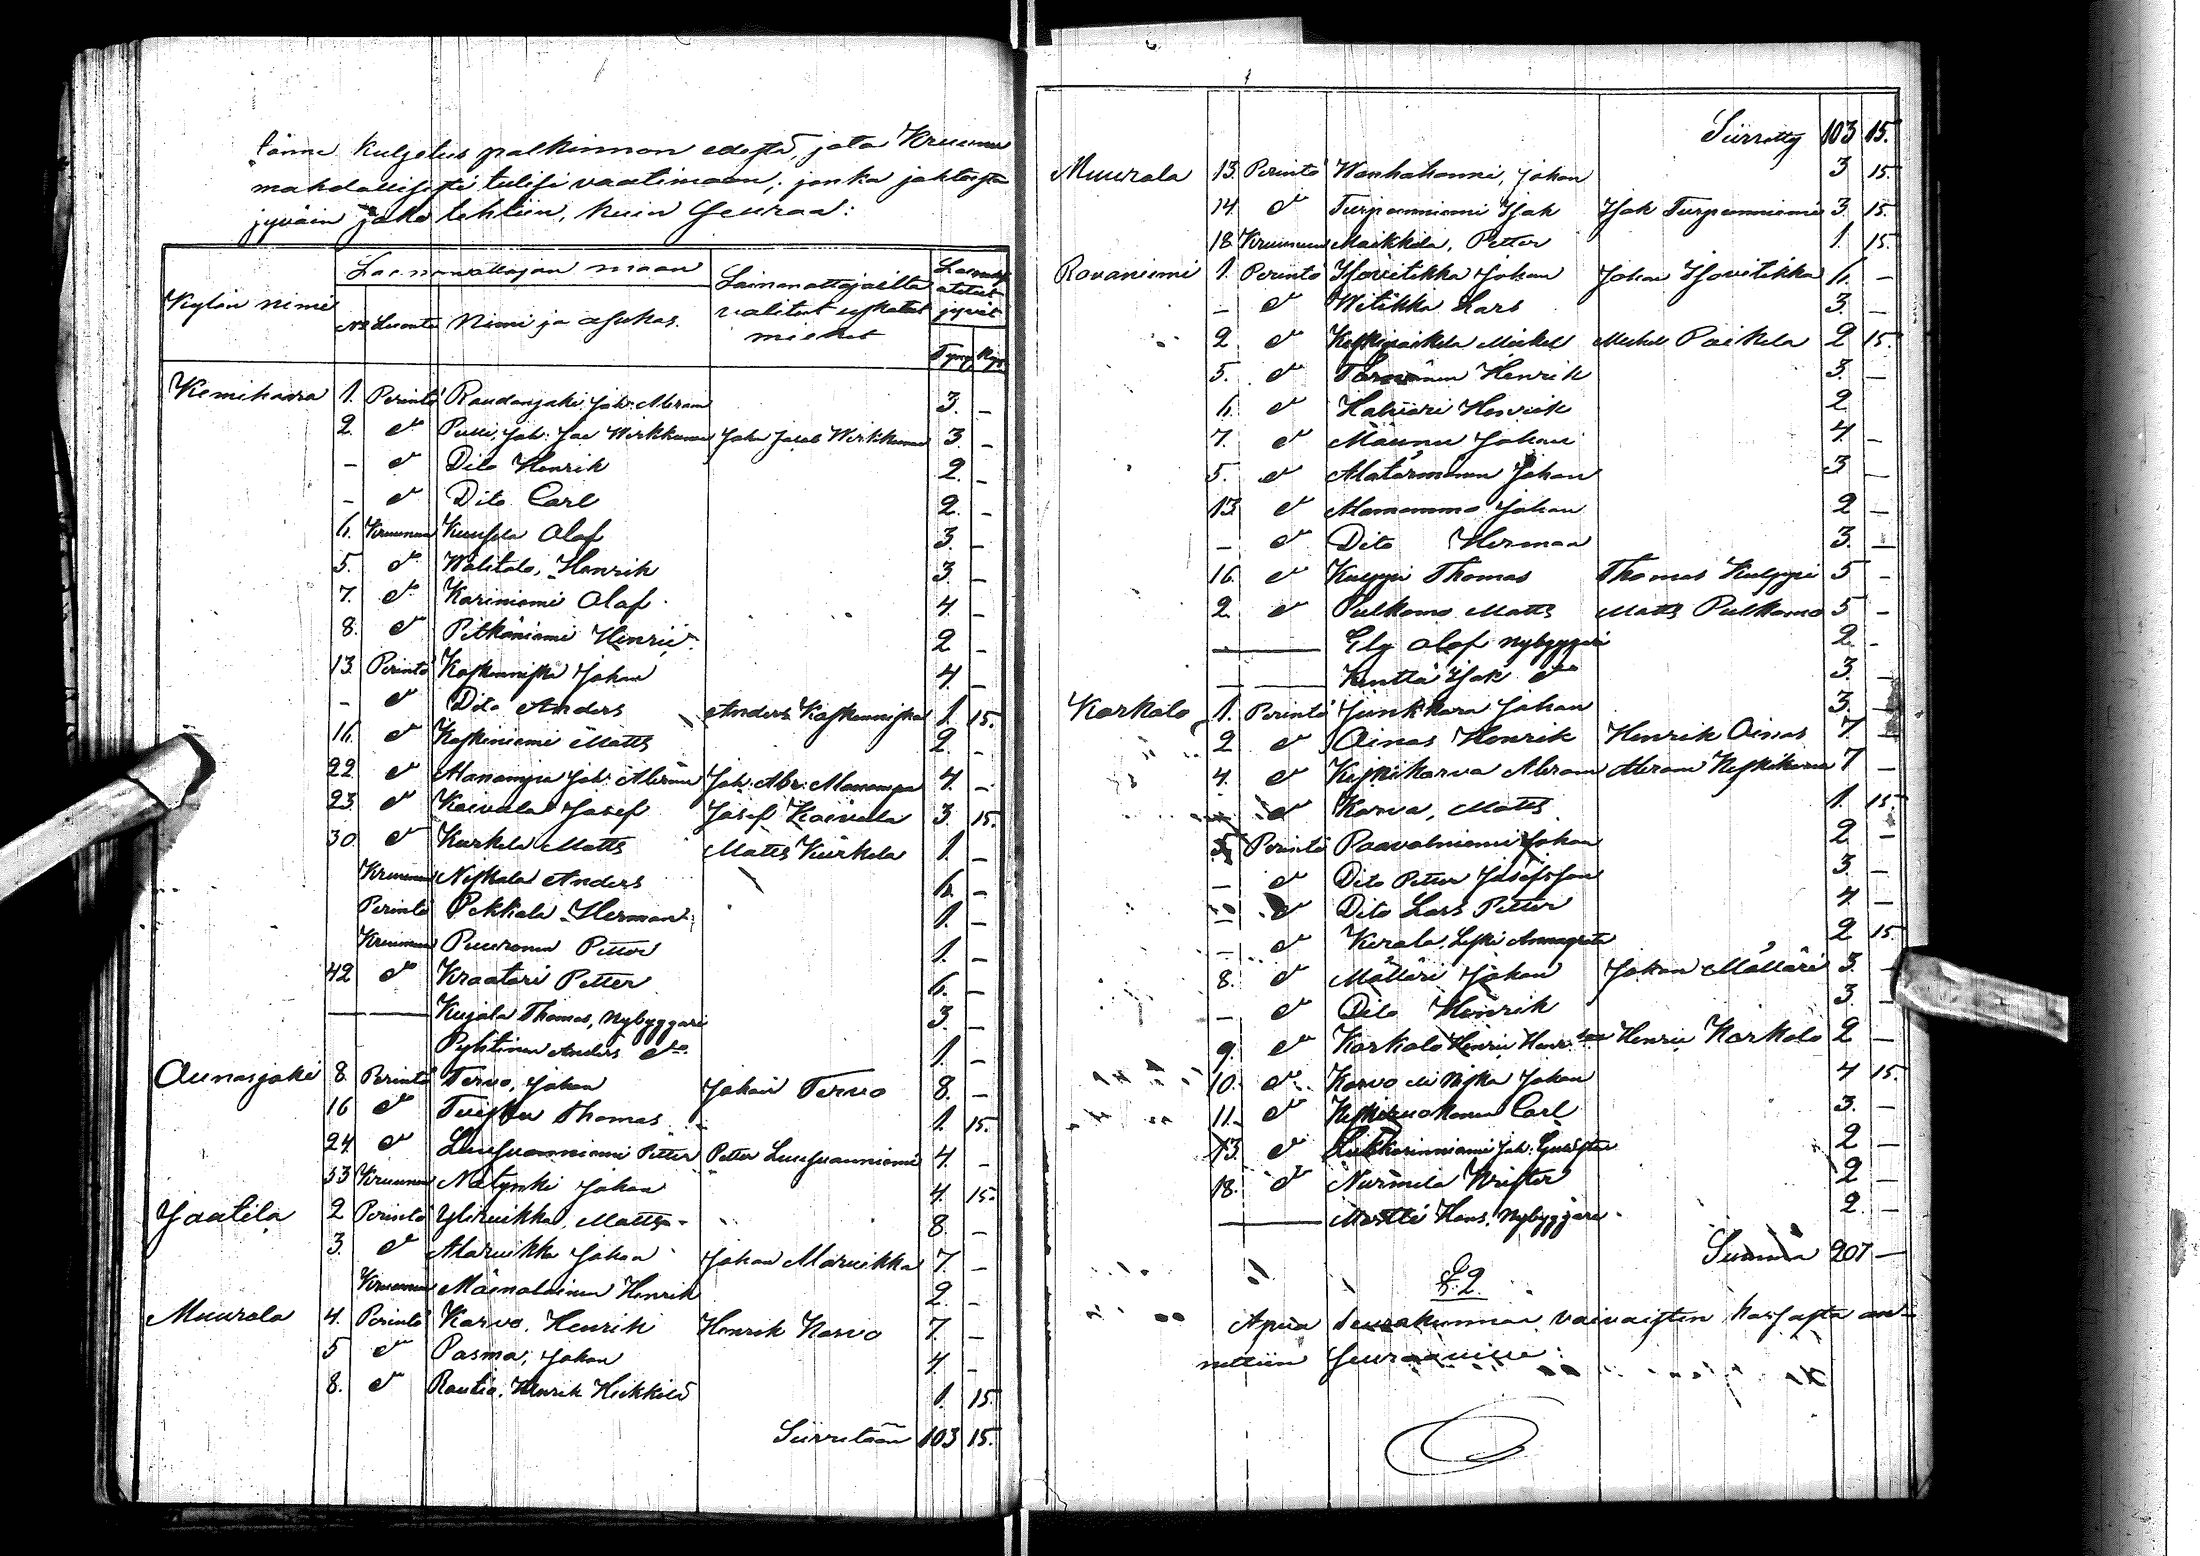 tänne kuljetus palkinnon edestä, jota Kruunu
mahdollisesti tulisi vaatimaan; jonka johdosta
jyväin jako tehtiin, kuin seuraa:
Kylän nimi Lainanottajan maan Lainanottajoilta valitut uskotut miehet jyvät
No Luonto Nimi ja asukas. Tynn. Kap.
Kemihaara 1. Perintö Raudanjoki Joh: Abram 3. –
2. do Pulli, Joh: Jac Werkkunen Joha Jacob Werkkunen 3. –
– do Dito Henrik 2. –
– do Dito Carl 2. –
6. Kruunun Kuusela Olof 3. –
5. do Walitalo, Henrik 3. –
7. do Kariniemi Olof 4. –
8. do Pitkäniemi Henric 2 –
13. Perintö Koskenniska Johan 4. –
– do Dito Anders Anders Koskenniska 1. 15.
16. do Koskiniemi Matts 2. –
22 do Alanampa Joh: Abram Joh: Abr: Alanampa 4. –
23 do Koivula Josef Josef Koivula 3. 15.
30. do Kurkela Matts Matts Kurkela 1. –
Kruunun Niskala Anders 6. –
Perintö Pekkala Herman 1. –
Kruunun Puuronen Petter 1. –
42 do Kraatari Petter 6. –
— Kujala Thomas, Nybyggare 3. –
Pyhtinen Anders do 1. –
Ounasjoki 8. Perintö Tervo, Johan Johan Tervo 8. –
16 do Thomas 1. 15.
24 do Luusuanniemi Petter Petter Luusuanniemi 4. –
33 Kruunun Natynki Johan 4. 15.
Jaatila 2 Perintö Yliruikka, Matts 8. –
3. do Alaruikka Johan Johan Alaruikka 7. –
Kruunun Mäinalainen Henrik 2. –
Muurola 4. Perintö Karvo, Henrik Henrik Karvo 7. –
5 do Pasma, Johan 4. –
8. do Rautio, Henrik Heikkilä 1. 15.
Siirretään 103 15.
Siirretty 103 15.
Muurola 13. Perintö Wanhahanni, Johan 3 15.
14. do Turpeenniemi Isak Isak Turpeenniemi 3. 15.
18 Kruunun Maikkela, Petter 1. 15.
Rovaniemi 1. Perintö Isovitikka Johan Johan Isovitikka 6. –
– do Witikka Lars 3. –
2 do Keskipaikela Mickel Mickel Paikela 2 15.
5. do Törmänen Henrik 3. –
6. do Haluari Henrik 2
7. do Määnu Johan 4. –
5. do Alatörmänen Johan 3 –
13. do Alamommo Johan 2 –
– do Dito Herman 3. –
16. do Kulppi Thomas Thomas Kulppi 5 –
2. do Pulkamo Matts Matts Pulkamo 5 –
— Ely Olof Nybyggare 2. –
— Kenttä Isak do 3. –
Korkalo 1. Perintö Junkkara Johan 3. –
2 do Oinas Henrik Henrik Oinas 7 –
4. do Keskikarva Abram Abram Keskikarva 7 –
do Karva, Matts 1. 15.
5 Perintö Paavalniemi Johan 2 –
– do Dito Petter Josefsson 3. –
– do Dito Lars Petter 4. –
– do Kerola, Leski Annagreta 2 15.
8. do Mölläri Johan Johan Mölläri 3. –
– do Dito Henrik 3. –
9. do Korkalo Henric Henr:son Henric Korkalo 2 –
10. do Karvo eli Niska Johan 4 15.
11. do Keskiruokanen Carl 3. –
13. do Lukkarinniemi Joh: 2 –
18. do Nurmela Krister 2 –
— Martti Hans, Nybyggare 2. –
Summa 207 –
§ 2.
Apua Seurakunnan vaivaisten kassasta an-
nettiin seuraaville: